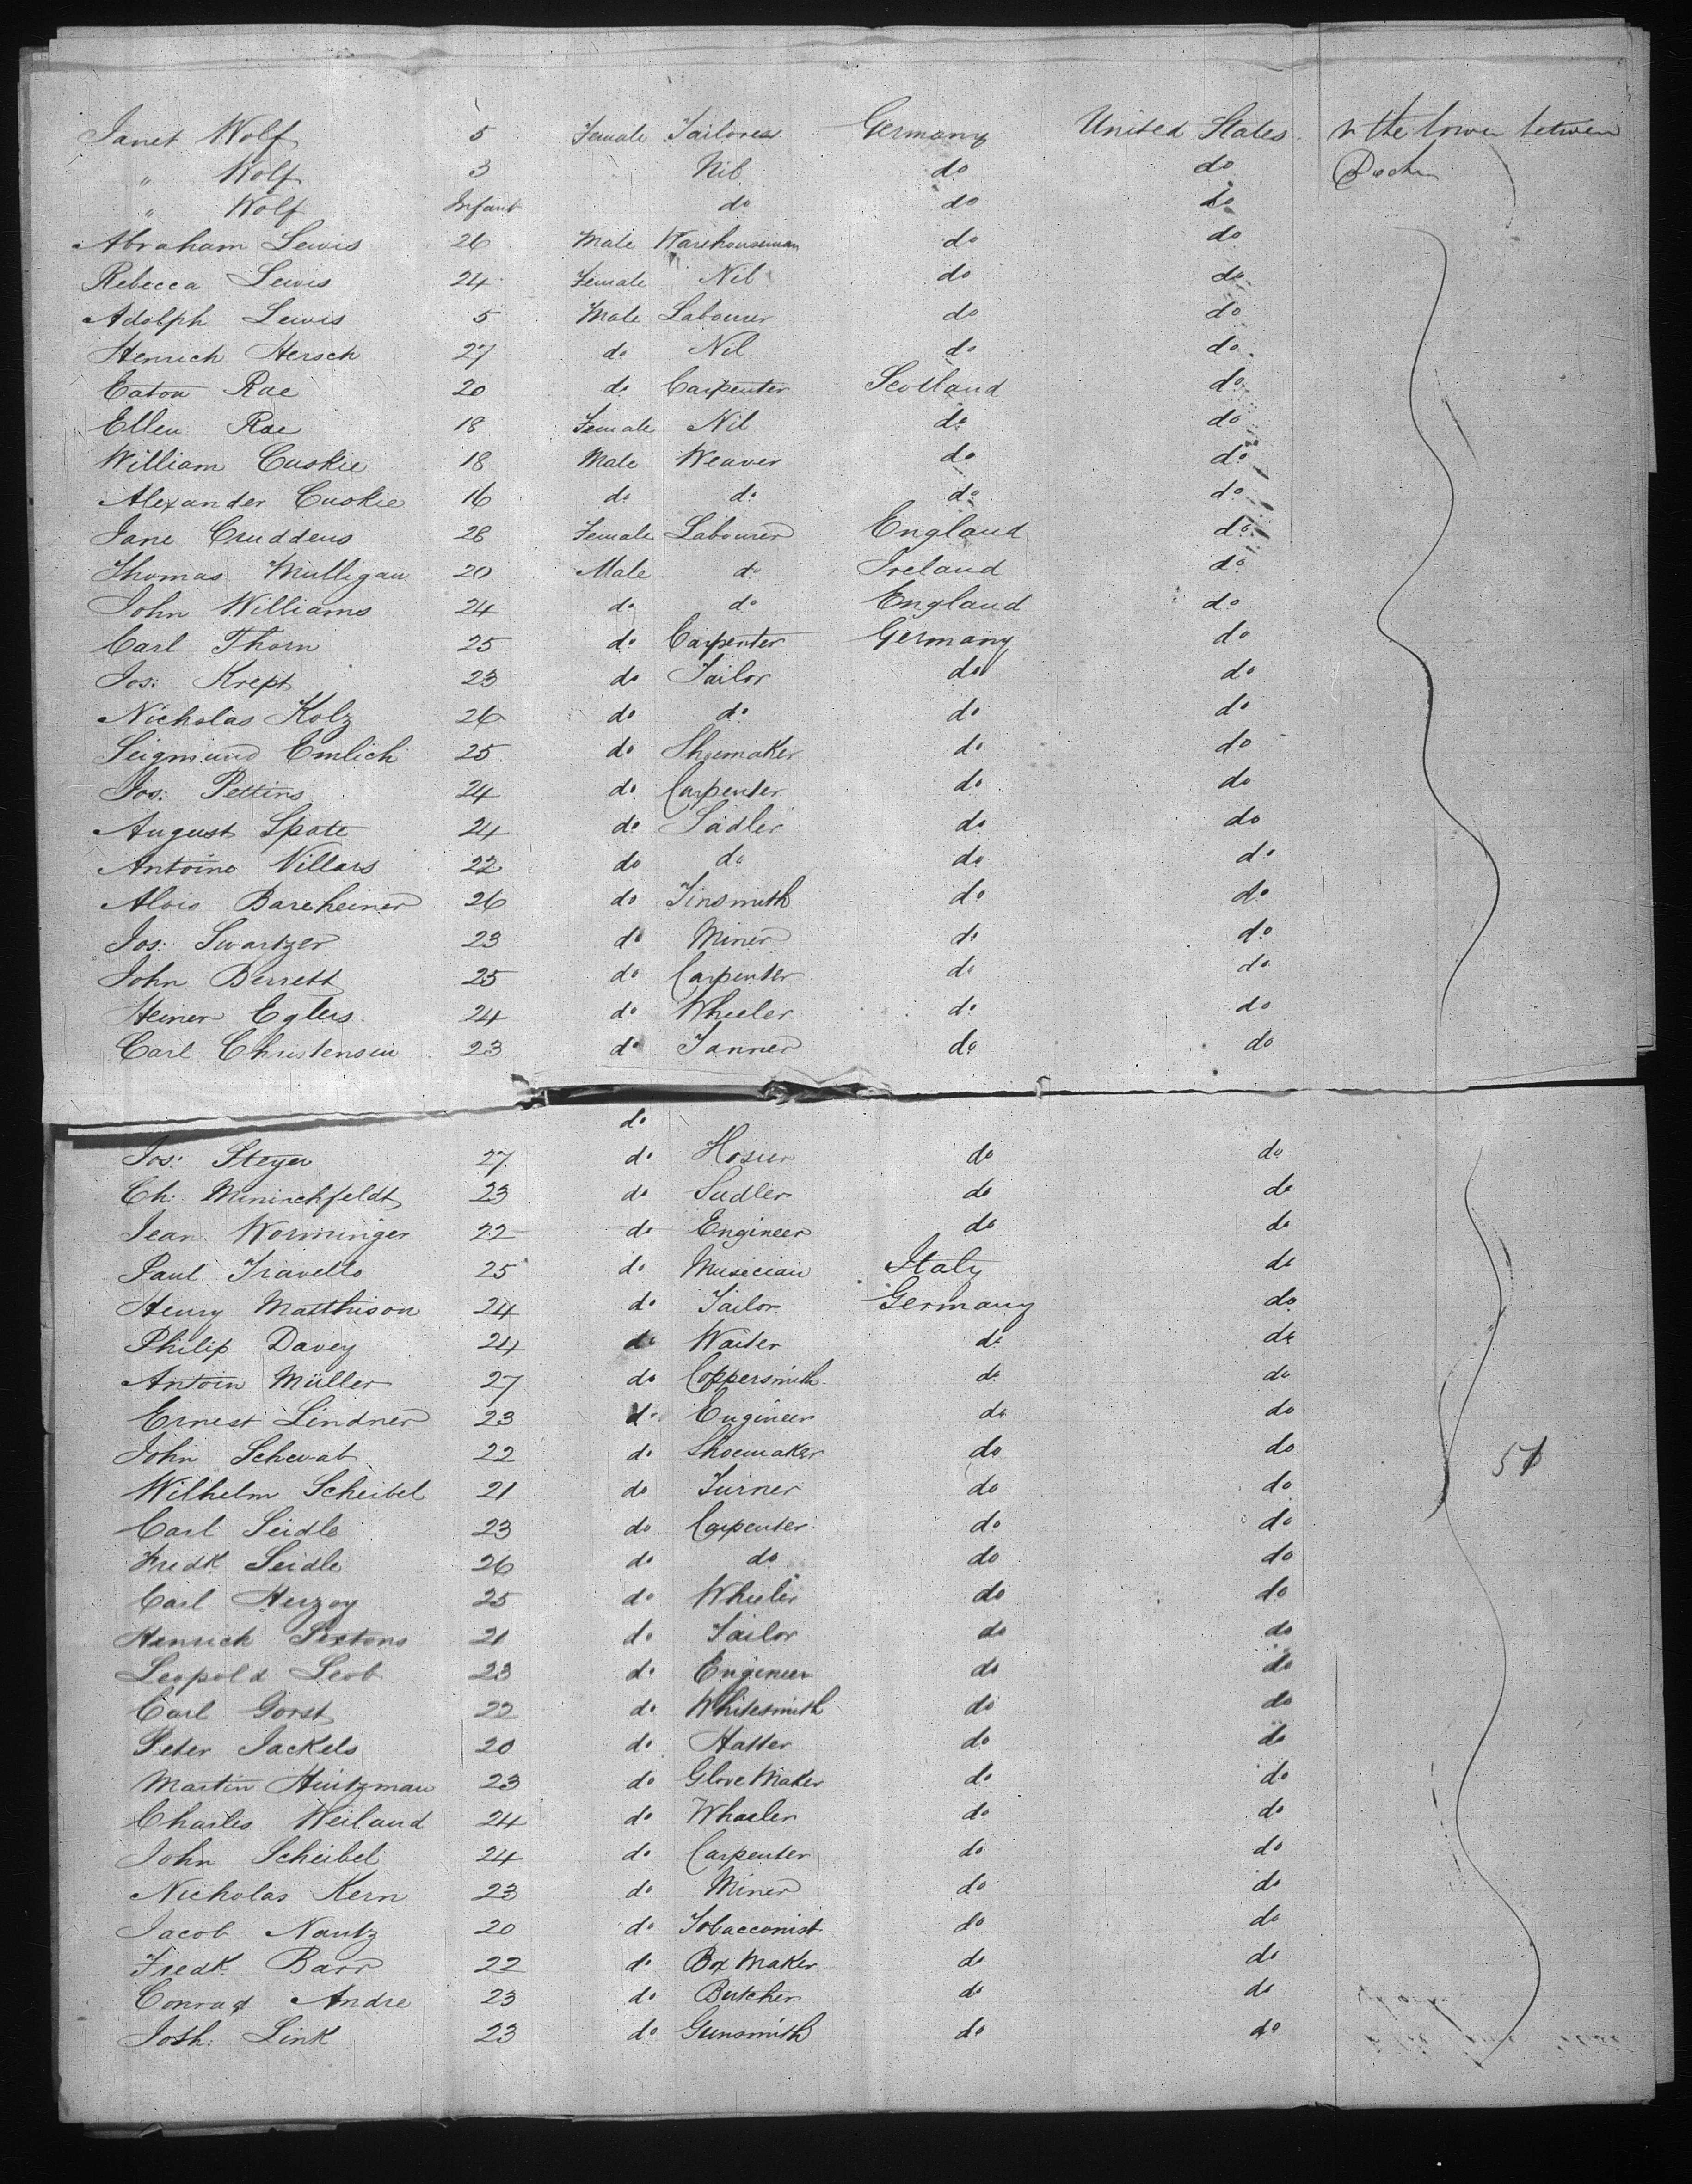 Janet Wolf 5 Female Tailoress Germany United States the lower between
" Wolf 3 Nil do do Decks
" Wolf Infant do do do
Abraham Lewis 26 Male Warehouseman do do
Rebecca Lewis 24 Female Nil do do
Adolph Lewis 5 Male Labourer do do
Henrich Hersch 27 do Nil do do
Eaton Rae 20 do Carpenter Scotland do
Ellen Rae 18 Female Nil do do
William Cuskie 18 Male Weaver do do
Alexander Cuskie 16 do do do do
Jane Cruddens 28 Female Labourer England do
Thomas Mulligan 20 Male do Ireland do
John Williams 24 do do England do
Carl Thorn 25 do Carpenter Germany do
Jos: Krept 23 do Tailor do do
Nicholas Kolz 26 do do do do
Seigmund Emlich 25 do Shoemaker do do
Jos: Pettins 24 do Carpenter do do
August Spate 24 do Sadler do do
Antoine Villars 22 do do do do
Alois Bareheiner 26 do Tinsmith do do
Jos: Swartzer 23 do Miner do do
John Berrett 25 do Carpenter do do
Heiner Eglers 24 do Wheeler do do
Carl Christensen 23 do Tanner do do
do
Jos: Steyer 27 do Hosier do do
Ch: Minirchfeldt 23 do Sadler do do
Jean Worminger 22 do Engineer do do
Paul Travello 25 do Musician Italy do
Henry Matthison 24 do Tailor Germany do
Philip Davey 24 do Waiter do do
Antoin Müller 27 do Coppersmith do do
Ernest Lindner 23 do Engineer do do
John Schwab 22 do Shoemaker do do
Wilhelm Scheibel 21 do Turner do do
Carl Seidle 23 do Carpenter do do
Fredk Seidle 26 do do do do
Carl Herzog 25 do Wheeler do do
Henrich Sextons 21 do Tailor do do
Leopold Leob 23 do Engineer do do
Carl Gorst 22 do Whitesmith do do
Peter Jackels 20 do Hatter do do
Martin Huitzman 23 do Glove Maker do do
Charles Weiland 24 do Wheeler do do
John Scheibel 24 do Carpenter do do
Nicholas Kern 23 do Miner do do
Jacob Nautz 20 do Tobacconist do do
Fredk Barr 22 do Box Maker do do
Conrad Andre 23 do Butcher do do
Josh: Link 23 do Gunsmith do do